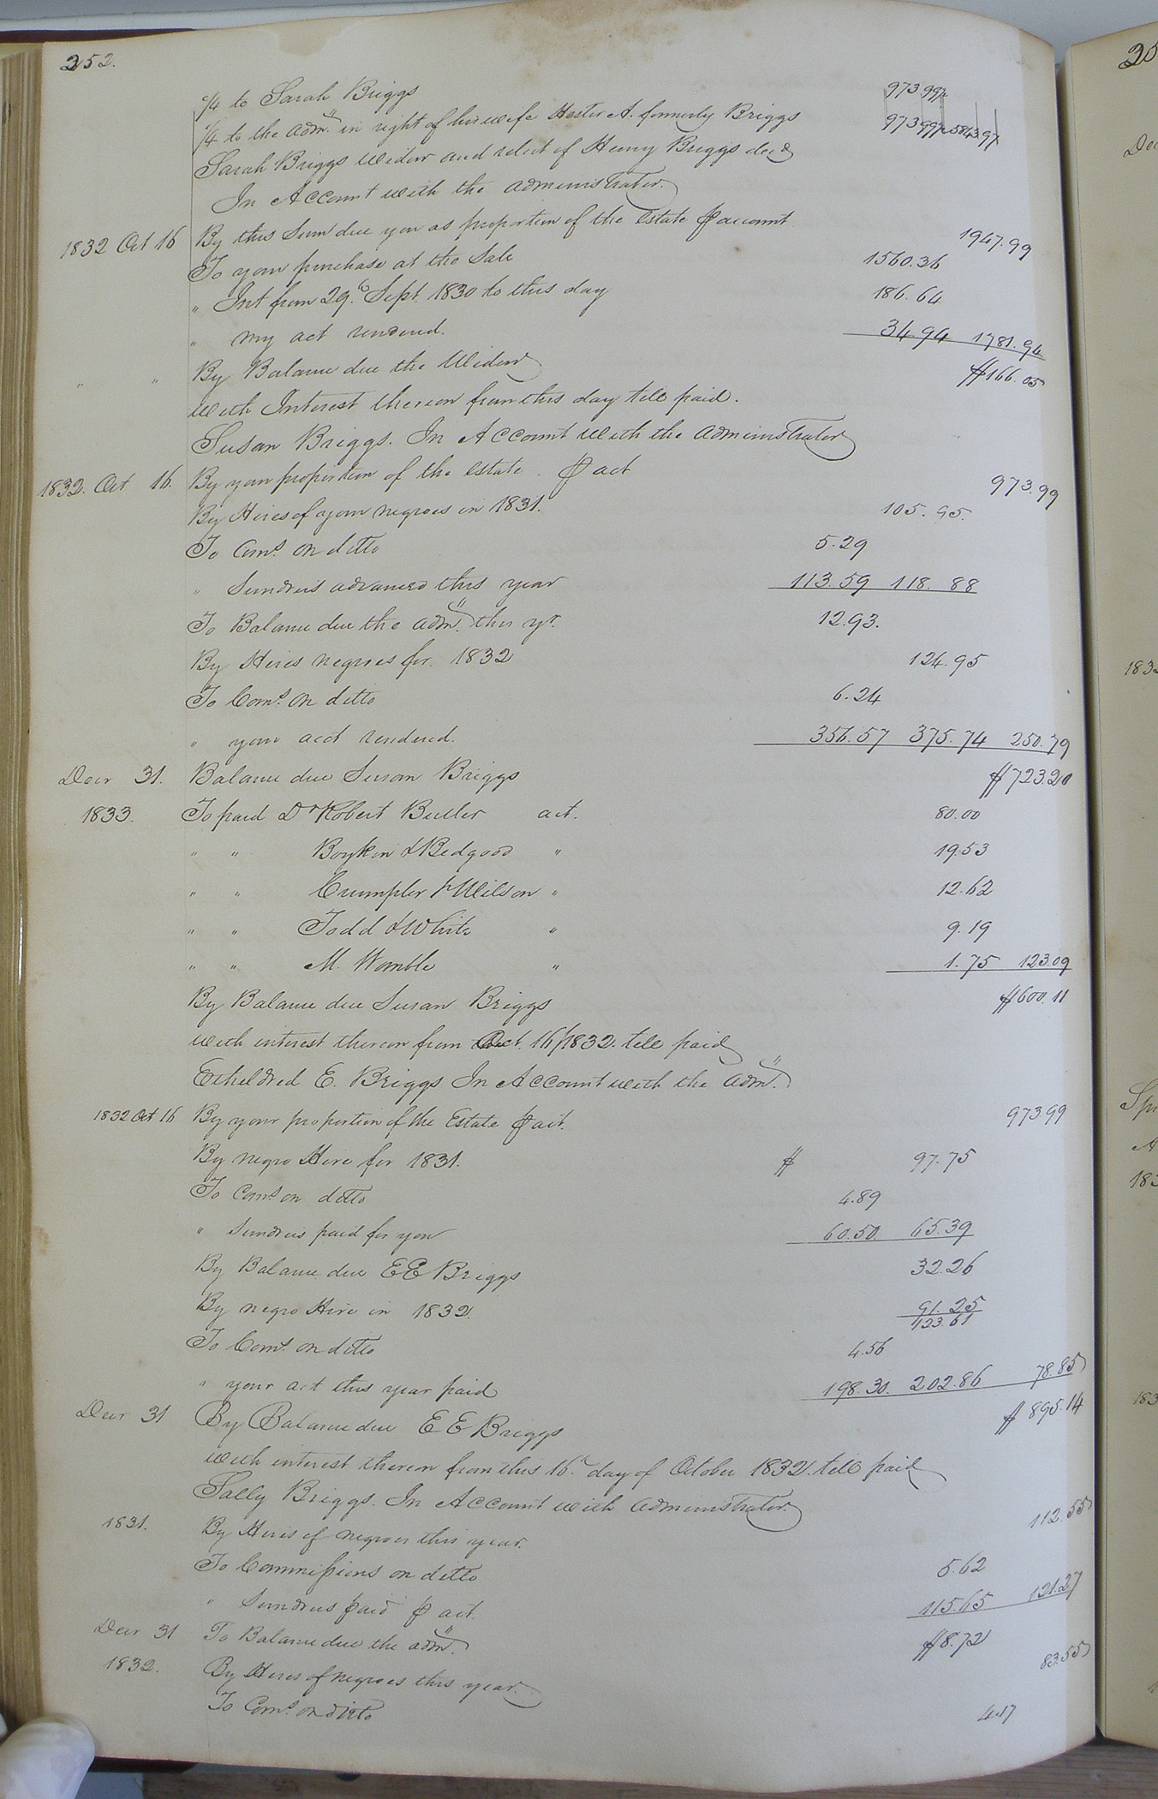 252.
1/4 to Sarah Briggs 973.99 1/4
1/4 to the Admr. in right of his wife Hester A. formerly Briggs 973.99 1/4 5843.97
Sarah Briggs Widow and relict of Henry Briggs decd
In Account with the Administrator.
1832 Oct 16 By this Sum due you as proportion of the Estate ⅌ account 1947.99
To your purchase at the Sale 1560.36
" Int from 29th Sept. 1830 to this day 186.64
" my act rendered. 34 94 1781.94
" " By Balance due the Widow $166.05
with Interest thereon from this day till paid.
Susan Briggs. In Account with the Administrator
1832. Oct 16. By your proportion of the Estate ⅌ act 973.99
By Hires of your negroes in 1831. 105.95.
To Coms. on ditto 5.29
" Sundries advanced this year 113.59 118.88
To Balance due the Admr. this yr. 12.93.
By Hires negroes for 1832 124.95
To Coms. on ditto 6.24
" your acct rendered. 356.57 375.74 250.79
Decr 31. Balance due Susan Briggs $723.20
1833. To paid Dr Robert Butler act. 80.00
" " Boykin & Bedgood " 19.53
" " Crumpler & Wilson " 12.62
" " Todd & White " 9.19
" " M. Womble " 1.75 123.09
By Balance due Susan Briggs $600.11
with interest thereon from Oct. 16/1832. till paid
Etheldred E. Briggs In Account with the Admr.
1832 Oct 16 By your proportion of the Estate ⅌ act. 973.99
By negro Hire for 1831. $ 97.75
To Coms on ditto 4.89
" Sundries paid for you 60.50. 65.39
By Balance due E E Briggs 32.26
By negro Hire in 1832. 91.25
123.61
To Coms. on ditto 4.56
" your act this year paid 198.30. 202.86 78.85
Decr 31 By Balance due E E Briggs $895.14
with interest thereon from this 16th day of October 1832. till paid
Sally Briggs. In Account with Administrator.
1831. By Hires of negroes this year. 112.55
To Commissions on ditto 5.62
" Sundries paid ⅌ act. 115.65 121.27
Decr 31 To Balance due the Admr. $8.72
1832. By Hires of negroes this year. 83.55
To Coms. on ditto 4.17